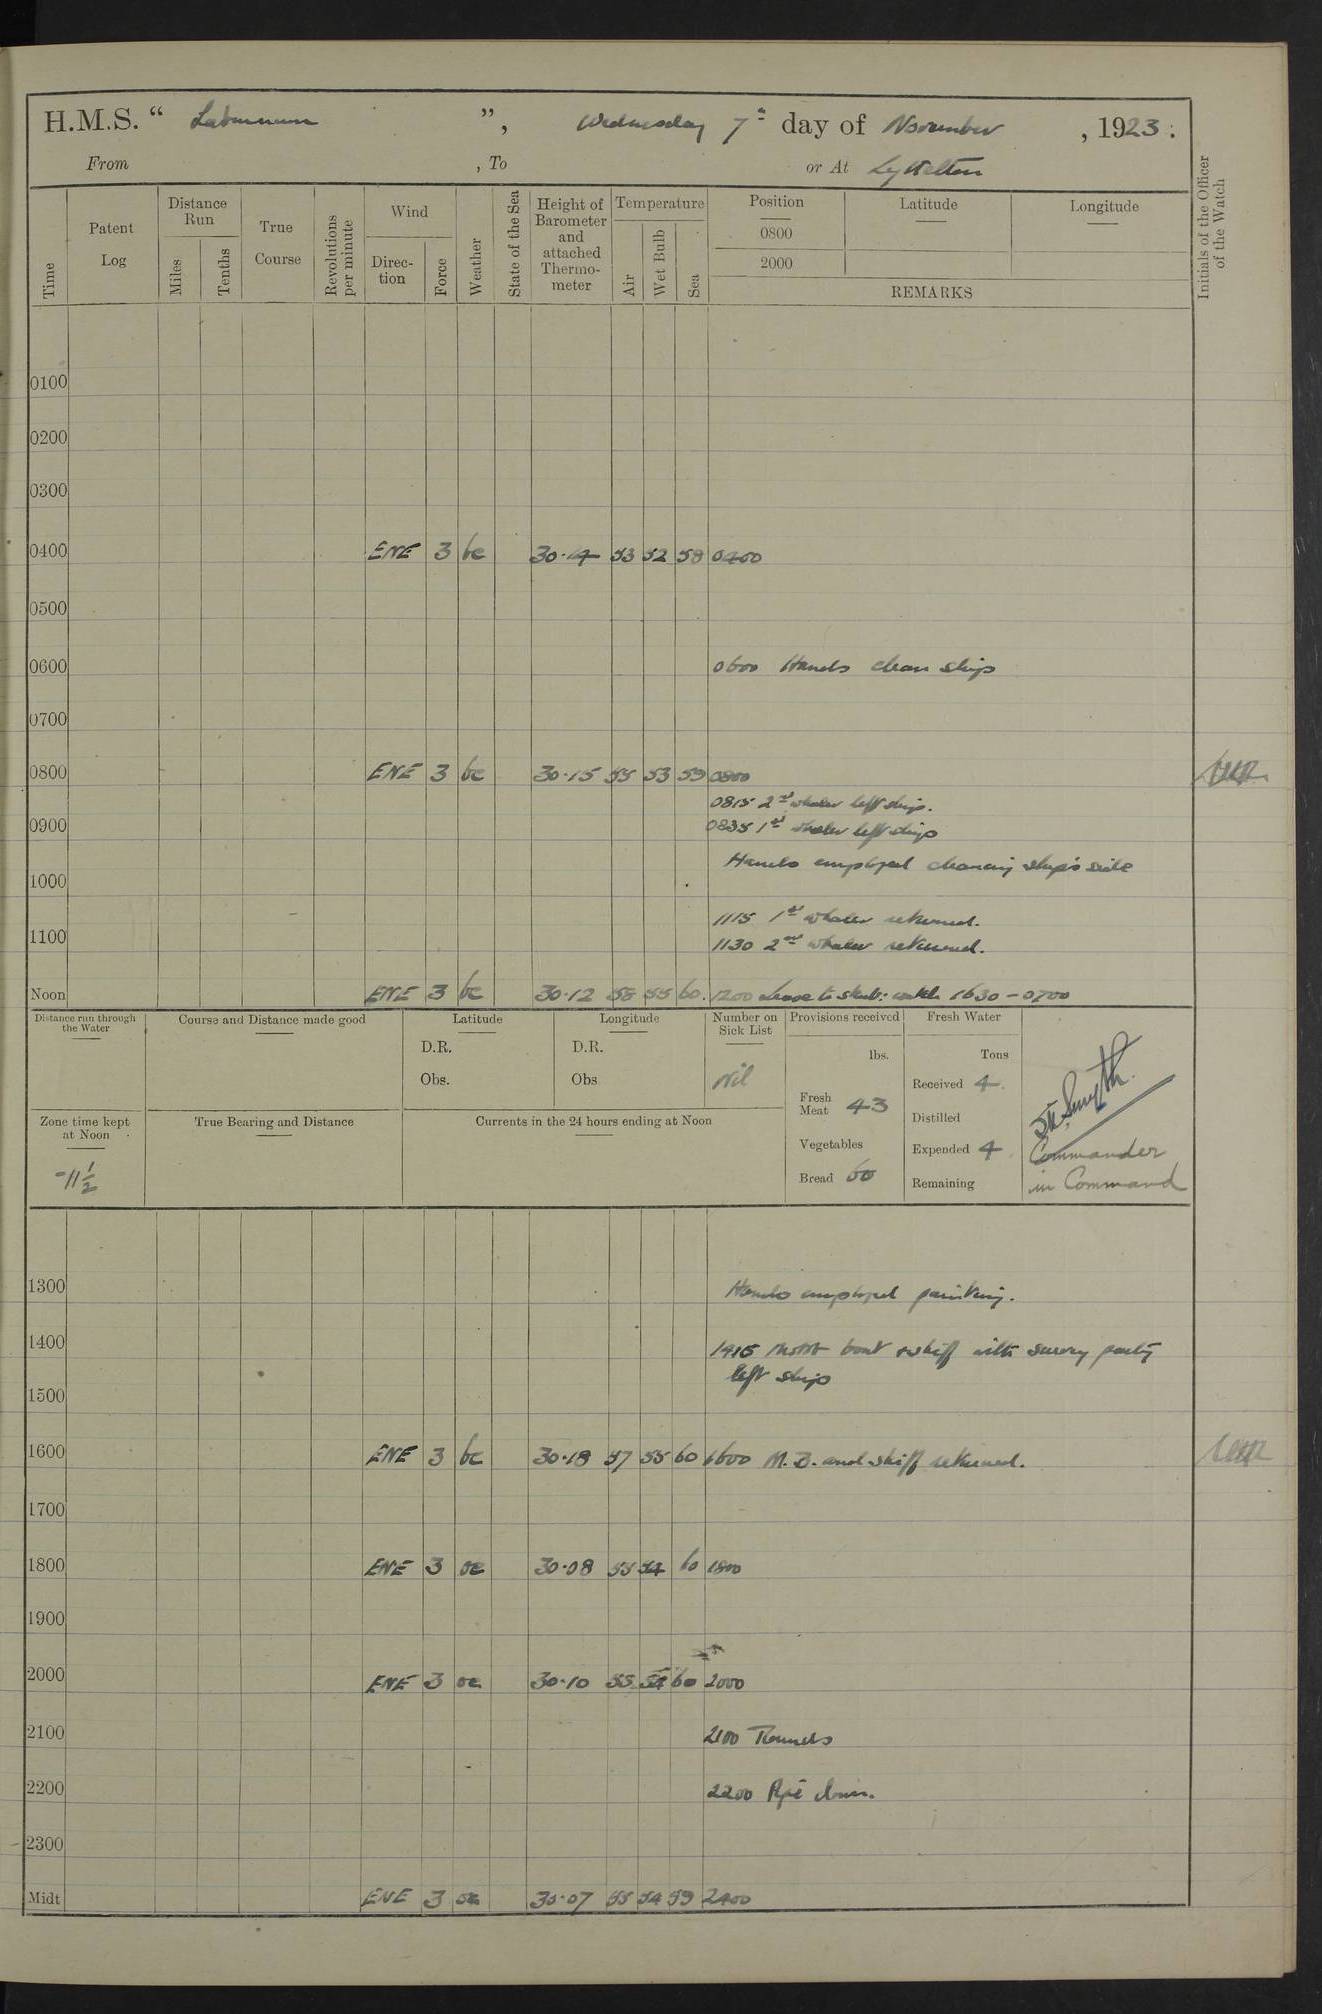 H.M.S. “ Laburnum ”, Wednesday 7th day of November , 1923 .
From , To or At Lyttelton
Time
Patent Log
Distance Run
Miles
Tenths
True Course
Revolutions per minute
Wind
Direc-tion
Force
Weather
State of the Sea
Height of Barometer and attached Thermo-meter
Temperature
Air
Wet Bulb
Sea
Position
0800
2000
Latitude
Longitude
REMARKS
Initials of the Officer of the Watch
0100
0200
0300
0400 ENE 3 bc 30·14 53 52 58 0400
0500
0600 0600 Hands clean ship
0700
0800 ENE 3 bc 30·15 55 53 59 0800
0815 2nd whaler left ship.
0900 0835 1st whaler left ship
Hands employed cleaning ship's side
1000
1115 1st whaler returned.
1100 1130 2nd whaler returned.
Noon ENE 3 bc 30·12 58 55 60. 1200 Leave to starb: watch 1630 – 0700
Distance run through the Water
Course and Distance made good
Latitude
D.R.
Obs.
Longitude
D.R.
Obs
Number on Sick List
Nil
Provisions received
lbs.
Fresh Meat 43
Vegetables
Bread 60
Fresh Water
Tons
Received 4
Distilled
Expended 4
Remaining
Smyth
Commander
in Command
Zone time kept at Noon
-11 1/2
True Bearing and Distance
Currents in the 24 hours ending at Noon
1300 Hands employed painting.
1400 1415 Motor boat & skiff with survey party
left ship
1500
1600 ENE 3 bc 30·18 57 55 60 1600 M.B. and skiff returned.
1700
1800 ENE 3 oc 30·08 55 54 60 1800
1900
2000 ENE 3 oc 30·10 55 54 60 2000
2100 2100 Rounds
2200 2200 Pipe down.
2300
Midt ENE 3 oc 30·07 55 54 59 2400